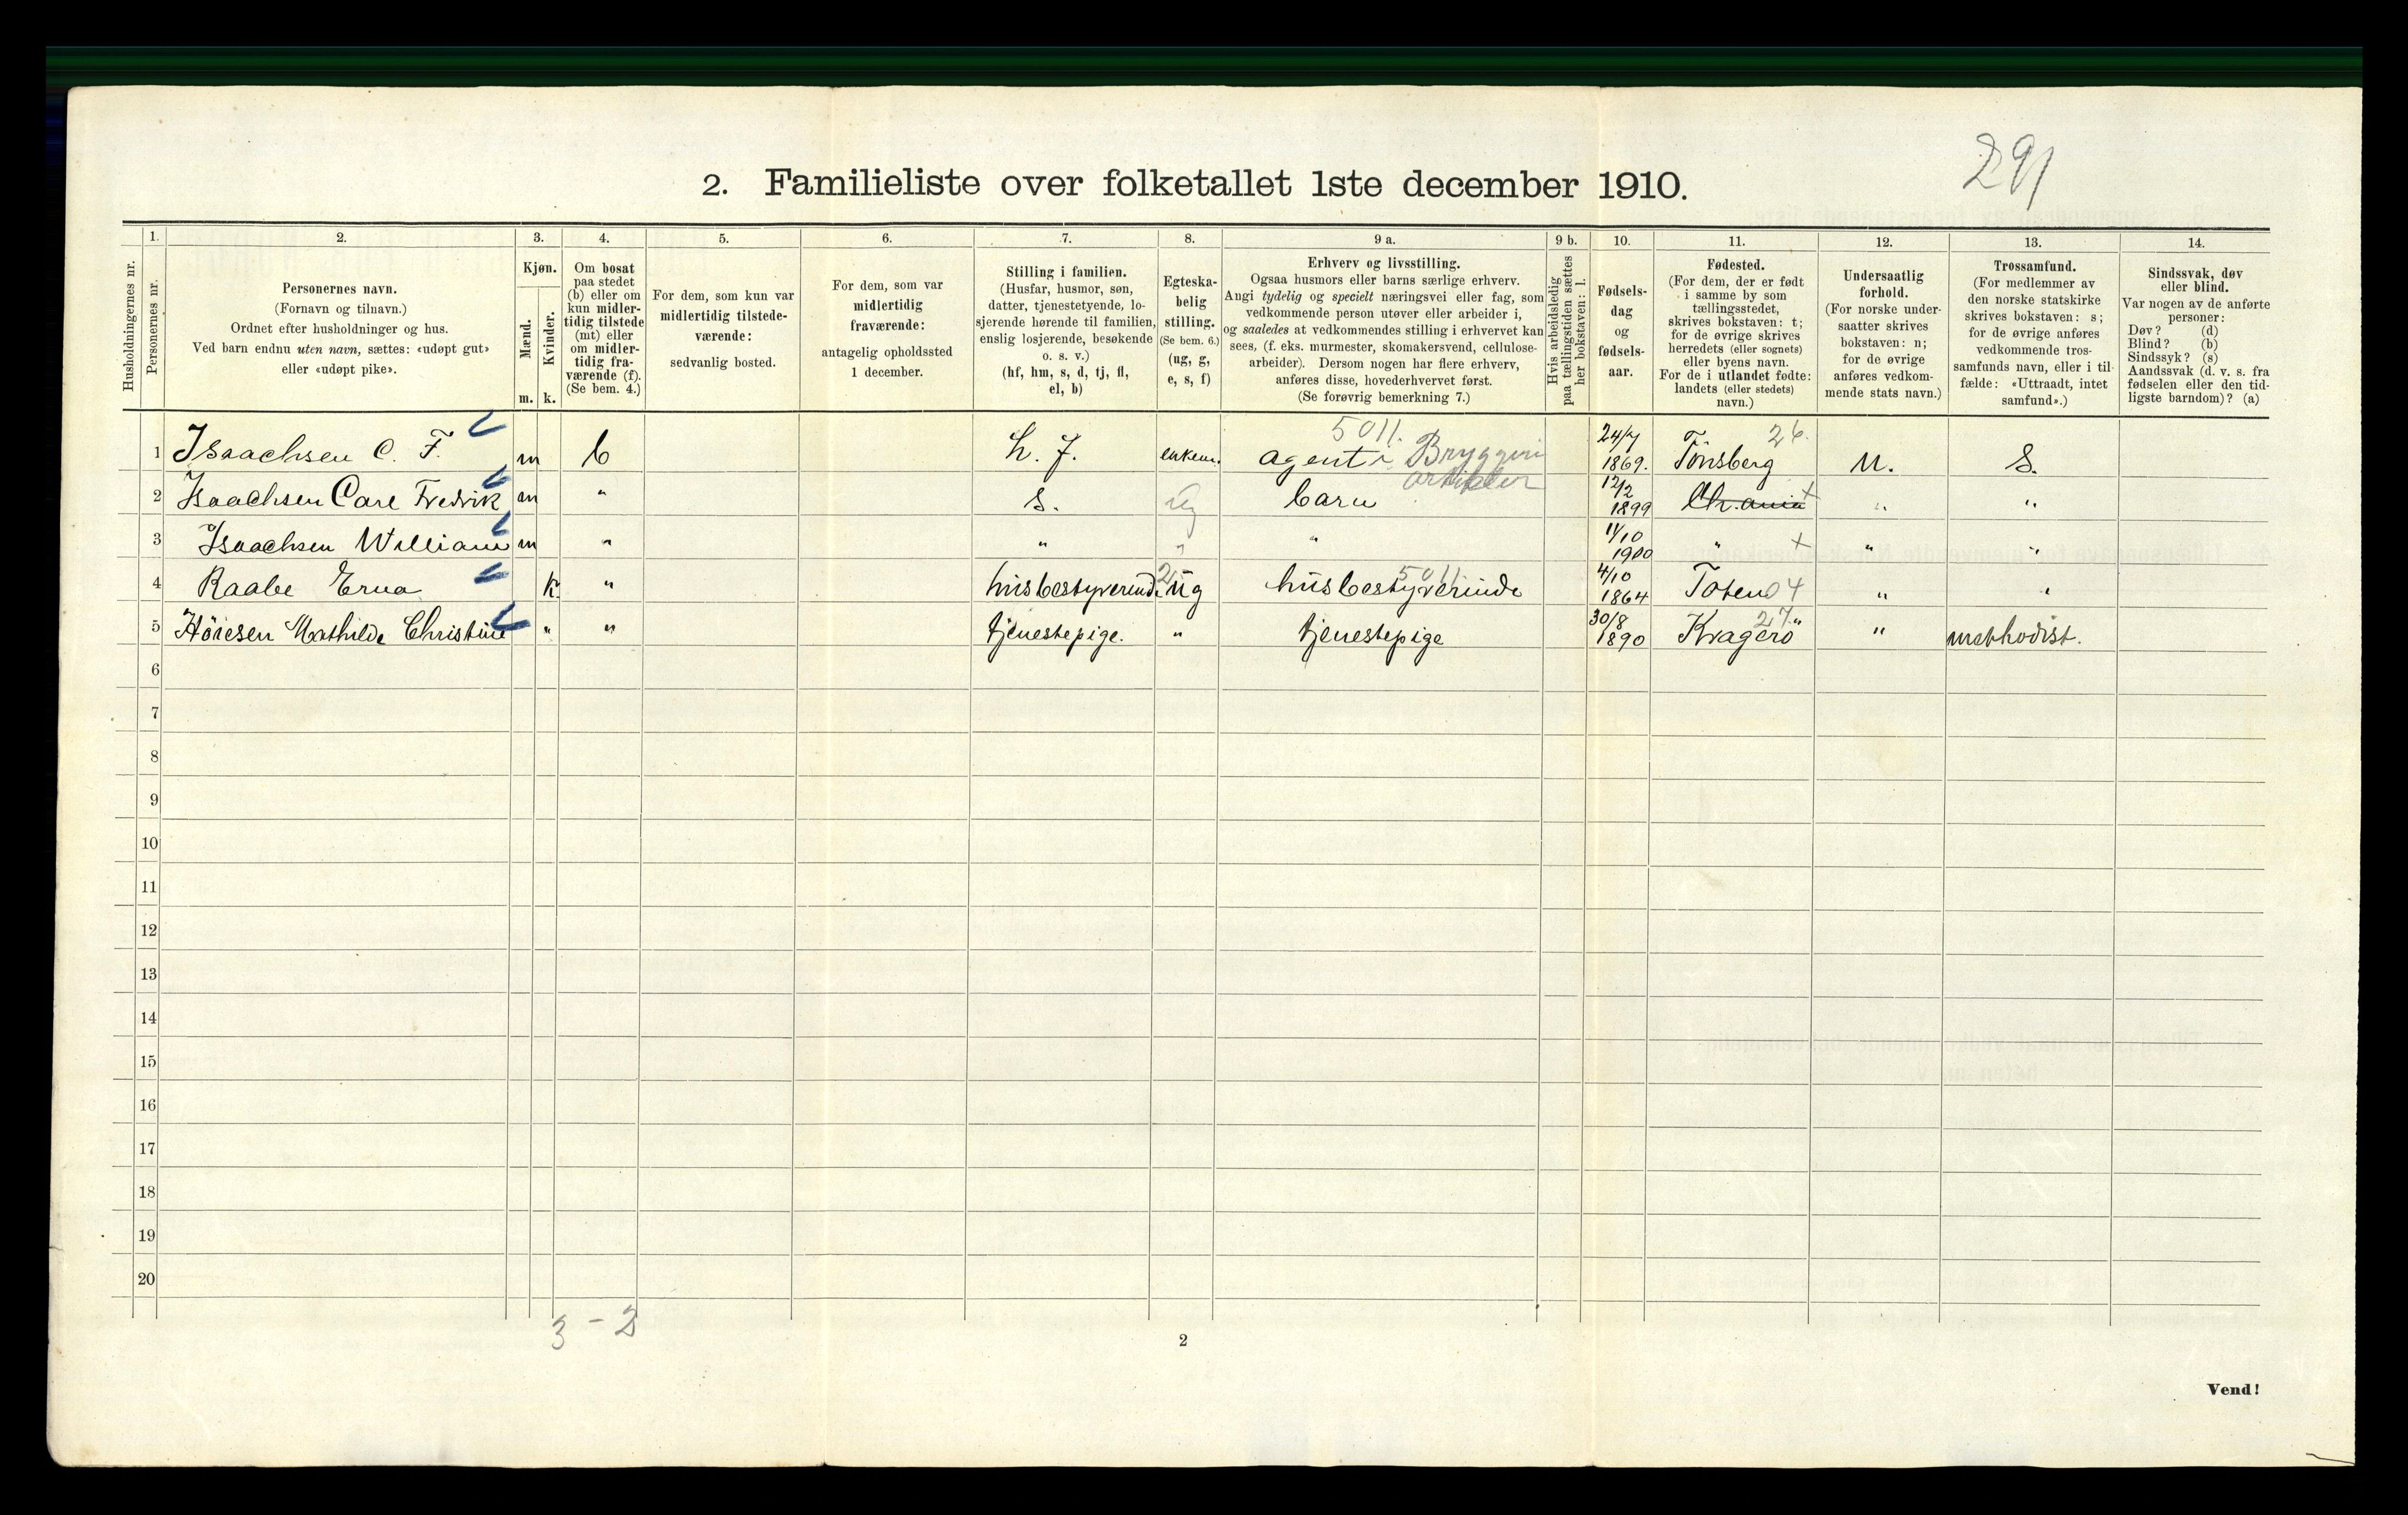 291
2. Familieliste over folketallet 1ste december 1910.
1. 2. 3. 4. 5. 6. 7. 8. 9 a. 9 b. 10. 11. 12. 13. 14.
Husholdningernes nr.
Personernes nr.
Personernes navn.
(Fornavn og tilnavn.)
Ordnet efter husholdninger og hus.
Ved barn endnu uten navn, sættes: «udøpt gut»
eller «udøpt pike».
Kjøn.
Mænd.
Kvinder.
m. k.
Om bosat
paa stedet
(b) eller om
kun midler-
tidig tilstede
(mt) eller
om midler-
tidig fra-
værende (f).
(Se bem. 4.)
For dem, som kun var
midlertidig tilstede-
værende:
sedvanlig bosted.
For dem, som var
midlertidig
fraværende:
antagelig opholdssted
1 december.
Stilling i familien.
(Husfar, husmor, søn,
datter, tjenestetyende, lo-
sjerende hørende til familien,
enslig losjerende, besøkende
o. s. v.)
(hf, hm, s, d, tj, fl,
el, b)
Egteska-
belig
stilling.
(Se bem. 6.)
(ug, g,
e, s, f)
Erhverv og livsstilling.
Ogsaa husmors eller barns særlige erhverv.
Angi tydelig og specielt næringsvei eller fag, som
vedkommende person utøver eller arbeider i,
og saaledes at vedkommendes stilling i erhvervet kan
sees, (f. eks. murmester, skomakersvend, cellulose-
arbeider). Dersom nogen har flere erhverv,
anføres disse, hovederhvervet først.
(Se forøvrig bemerkning 7.)
Hvis arbeidsledig
paa tællingstiden sættes
her bokstaven: l.
Fødsels-
dag
og
fødsels-
aar.
Fødested.
(For dem, der er født
i samme by som
tællingsstedet,
skrives bokstaven: t;
for de øvrige skrives
herredets (eller sognets)
eller byens navn.
For de i utlandet fødte:
landets (eller stedets)
navn.)
Undersaatlig
forhold.
(For norske under-
saatter skrives
bokstaven: n;
for de øvrige
anføres vedkom-
mende stats navn.)
Trossamfund.
(For medlemmer av
den norske statskirke
skrives bokstaven: s;
for de øvrige anføres
vedkommende tros-
samfunds navn, eller i til-
fælde: «Uttraadt, intet
samfund».)
Sindssvak, døv
eller blind.
Var nogen av de anførte
personer:
Døv? (d)
Blind? (b)
Sindssyk? (s)
Aandssvak (d. v. s. fra
fødselen eller den tid-
ligste barndom)? (a)
5011. 24/7 26.
1 Isaachsen C. F. m b h. f. enkem. agent i Bryggeri 1869. Tönsberg n. s.
artikler
2 Isaachsen Carl Fredrik m " s. ug barn 12/2 1899 Chr.ania + " "
3 Isaachsen William m " " " " 11/10 1900 " + " "
4 Raabe Erna k. " husbestyrerind. ug husbestyrerinde 5011 4/10 1864 Toten 04 " "
5 Höiesen Mathilde Christine " " tjenestepige. " tjenestepige 30/8 1890 Kragerö 27." " methodist.
6
7
8
9
10
11
12
13
14
15
16
17
18
19
20
3 - 2
2
Vend!